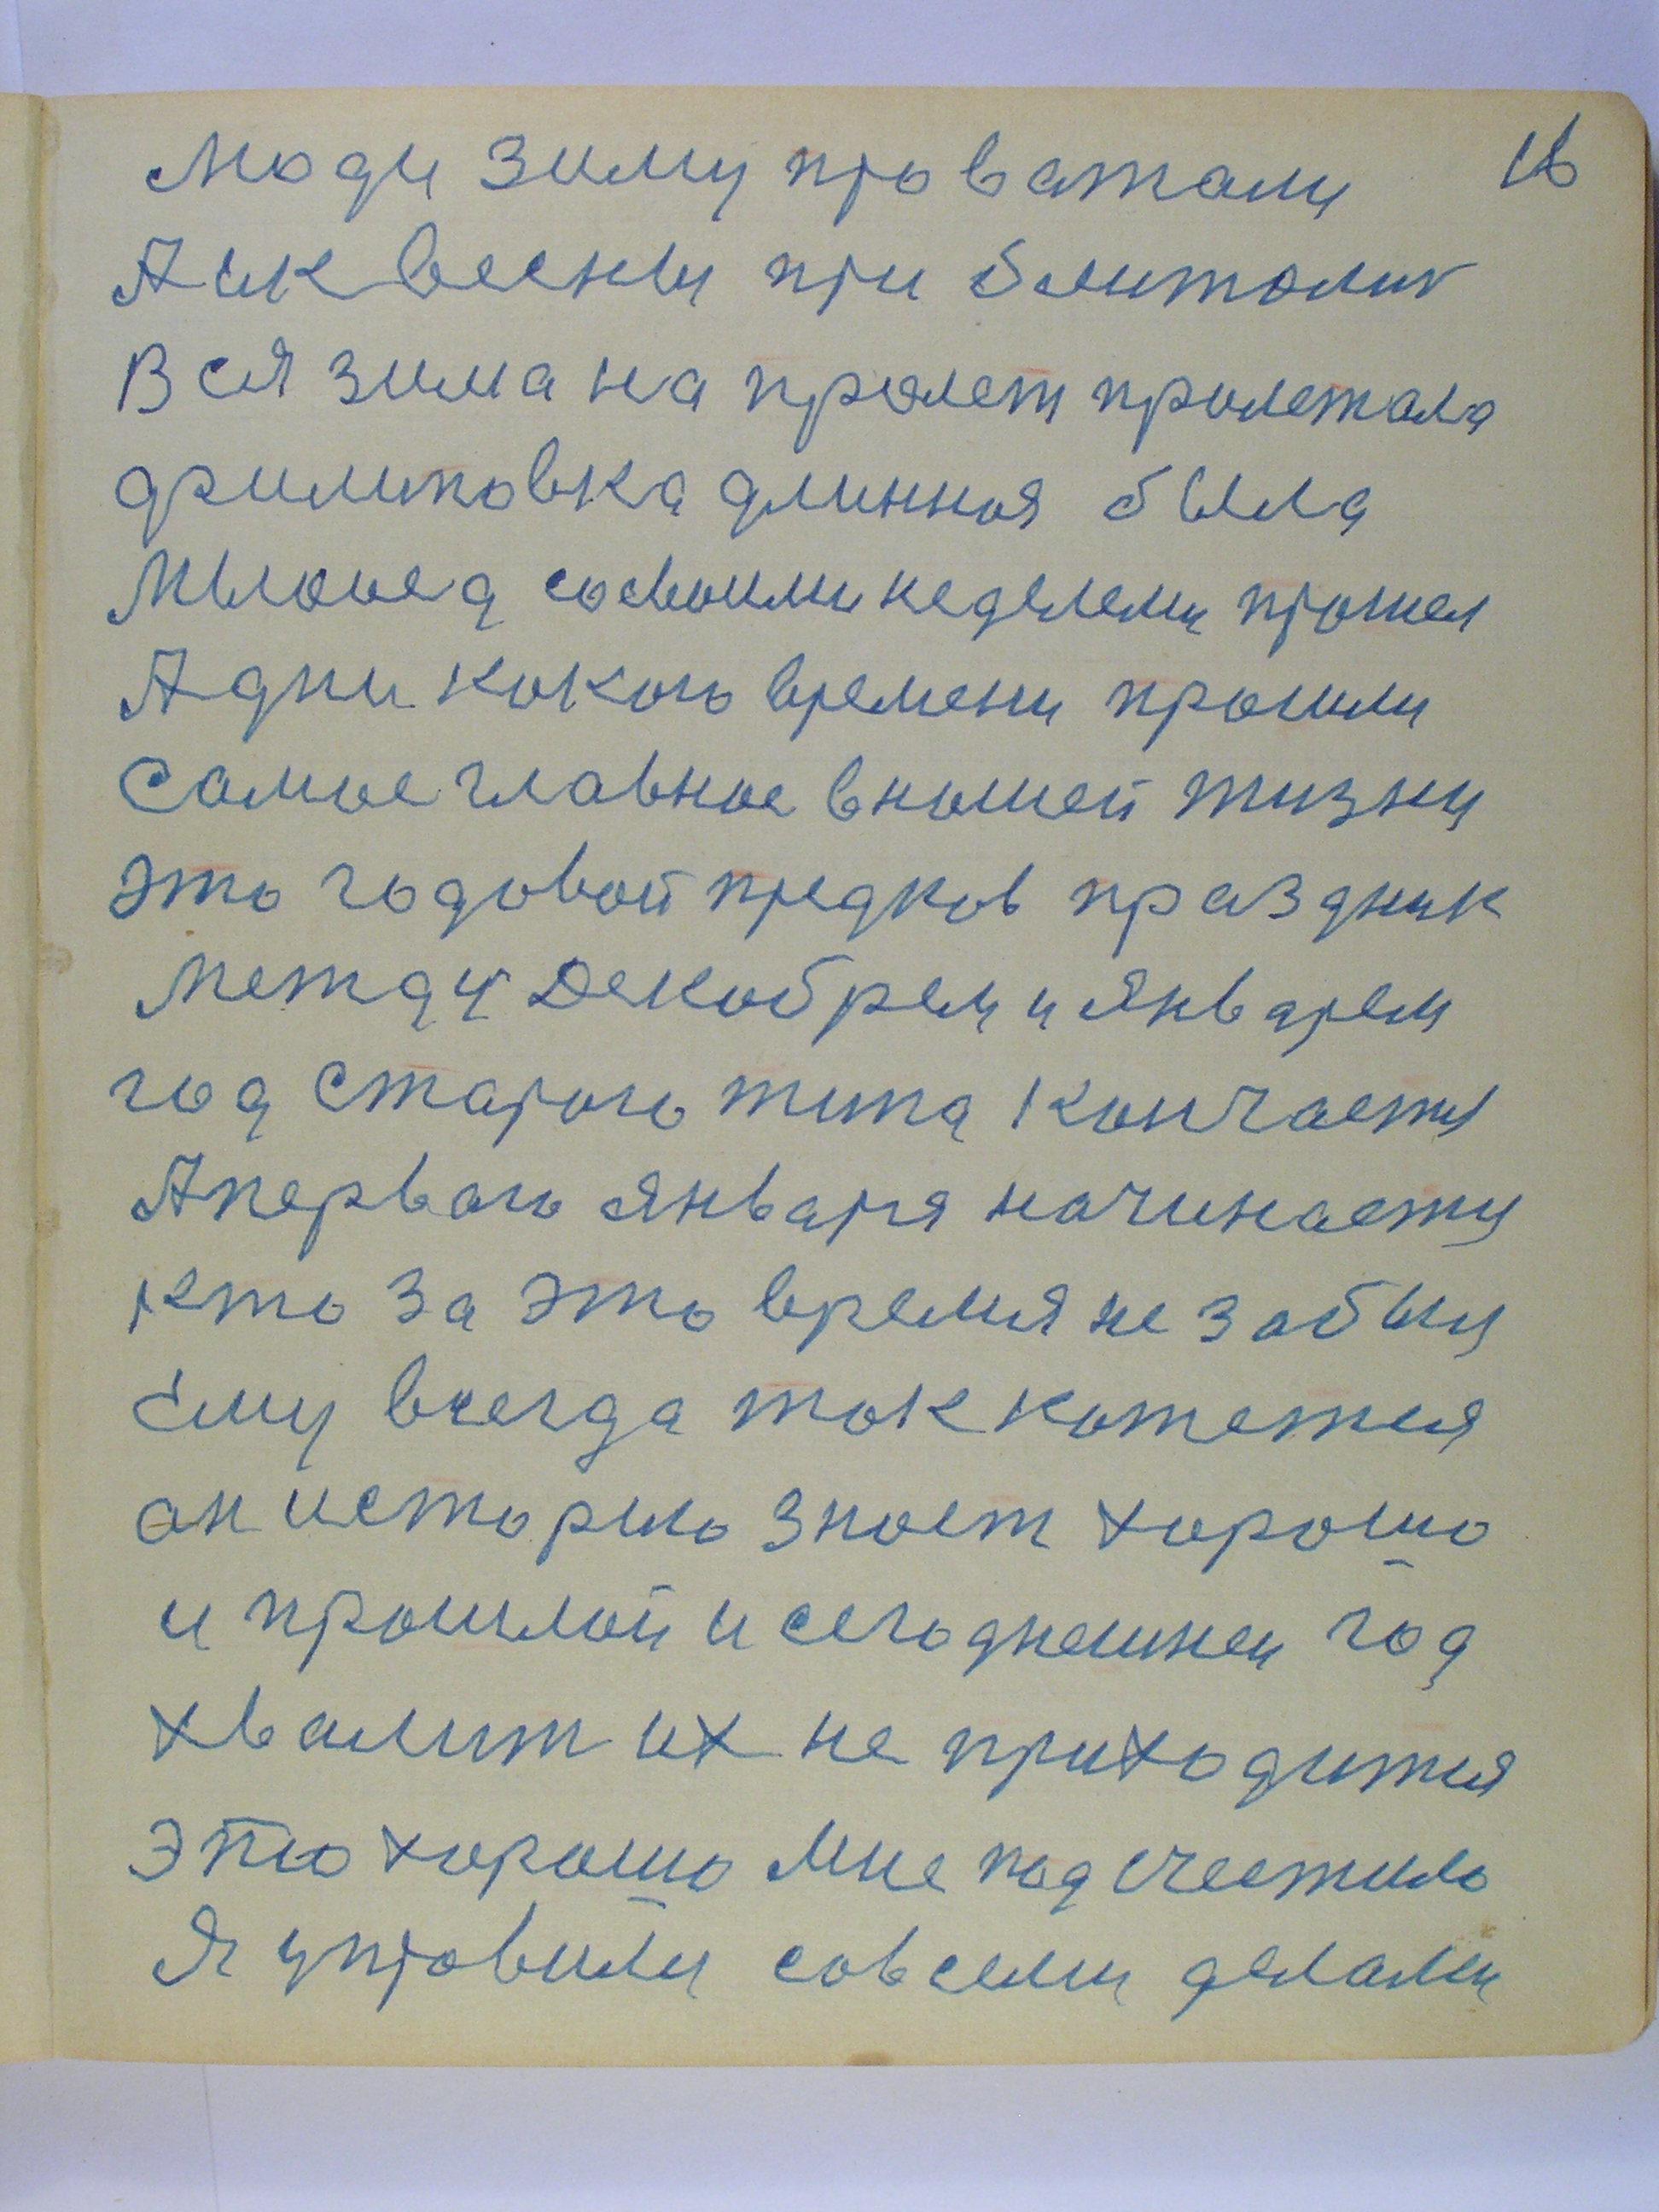 Люди зиму проважали 16
А ик весны при ближалик
Вся зима на пролет пролежала
дзимповка длинноя была
Мысоед сосвоими неделеми прошел
А дни кокого времени прошли
Самое главное вношей жизни
это годовой предков праздник
Между Декобрем и Январем
год старого типа кончается
Апервого Января начинаеты
кто за это время не забыи
Ему всегда ток кожетися
он историю знает хорошо
и прошлой и сегоднешнеи год
хвалит их не приходится
это хорошо Мне подсчестило
Я упровили совсеми делами